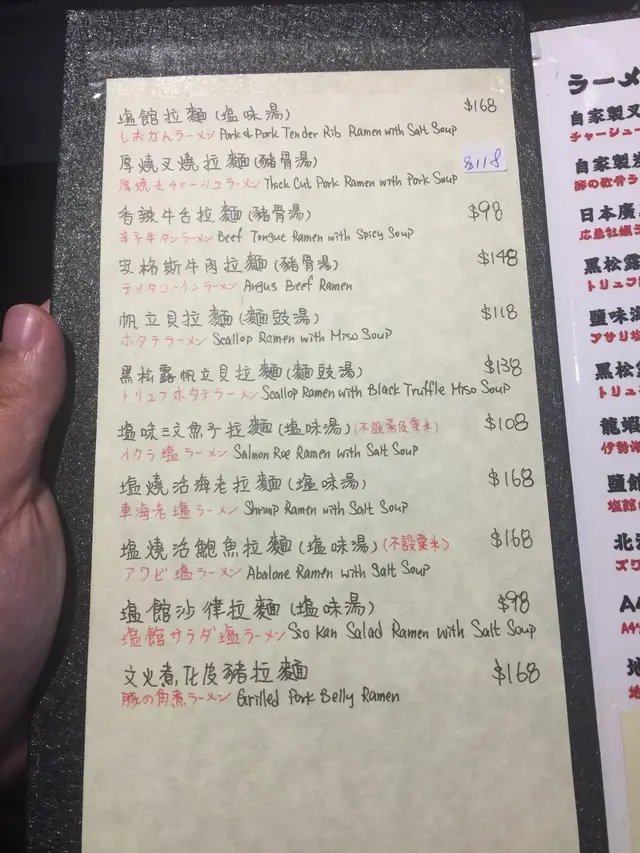 塩館拉麵(塩味湯) $168
しおかんラーメン Pork & Pork Tender Rib Ramen with Salt Soup
厚燒叉燒拉麵(豬骨湯) $118
厚焼きチャーシュラーメン Thick Cut Pork Ramen with Pork Soup
香辣牛舌拉麵(豬骨湯) $98
辛子牛タンラーメン Beef Tongue Ramen with Spicy Soup
安格斯牛肉拉麵(豬骨湯) $148
Angus Beef Ramen
帆立貝拉麵(麵豉湯) $118
ホタテラーメン Scallop Ramen with Miso Soup
黑松露帆立貝拉麵(麵豉湯) $138
トリュフホタテラーメン Scallop Ramen with Black Truffle Miso Soup
塩味三文魚子拉麵(塩味湯)(不設蛋及粟米) $108
イクラ塩ラーメン Salmon Roe Ramen with Salt Soup
塩燒活海老拉麵(塩味湯) $168
車海老塩ラーメン Shrimp Ramen with Salt Soup
塩燒活鮑魚拉麵(塩味湯)(不設粟米) $168
アワビ塩ラーメン Abalone Ramen with Salt Soup
塩館沙律拉麵(塩味湯) $98
塩館サラダ塩ラーメン Sio Kan Salad Ramen with Salt Soup
文火煮,化皮豬拉麵 $168
豚の角煮ラーメン Grilled Pork Belly Ramen
ラーメ
自家製叉
チャーシュー
自家製炭
豚の軟骨ラ
日本廣
広島牡蠣
黑松露
トリュフ
鹽味海
アサリ塩
黑松
トリュ
龍蝦
伊勢海
鹽館
塩館
北海
ズワ
A4
A4
地
地